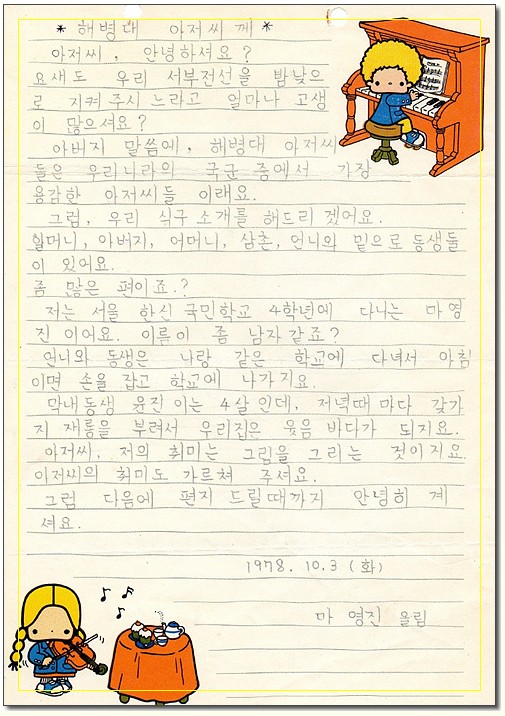 * 해병대 아저씨께 *
아저씨, 안녕하셔요?
요새도 우리 서부전선을 밤낮으
로 지켜 주시느라고 얼마나 고생
이 많으셔요?
아버지 말씀에, 해병대 아저씨
들은 우리나라의 국군 중에서 가장
용감한 아저씨들 이래요.
그럼, 우리 식구 소개를 해드리 겠어요.
할머니, 아버지, 어머니, 삼촌, 언니와 밑으로 동생둘
이 있어요.
좀 많은 편이죠.?
저는 서울 한신 국민학교 4학년에 다니는 마영
진 이어요. 이름이 좀 남자같죠?
언니와 동생은 나랑 같은 학교에 다녀서 아침
이면 손을 잡고 학교에 나가지요.
막내동생 윤진이는 4살인데, 저녁때마다 갖가
지 재롱을 부려서 우리집은 웃음 바다가 되지요.
아저씨, 저의 취미는 그림을 그리는 것이지요.
아저씨의 취미도 가르쳐 주셔요.
그럼 다음에 편지 드릴때까지 안녕히 계
셔요.
1978. 10.3 (화)
마 영진 올림